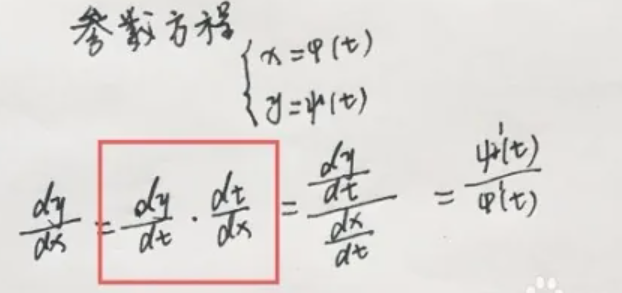 参数方程
{ x=φ(t)
{ y=ψ(t)
dy/dx = dy/dt · dt/dx = (dy/dt)/(dx/dt) = ψ'(t)/φ'(t)